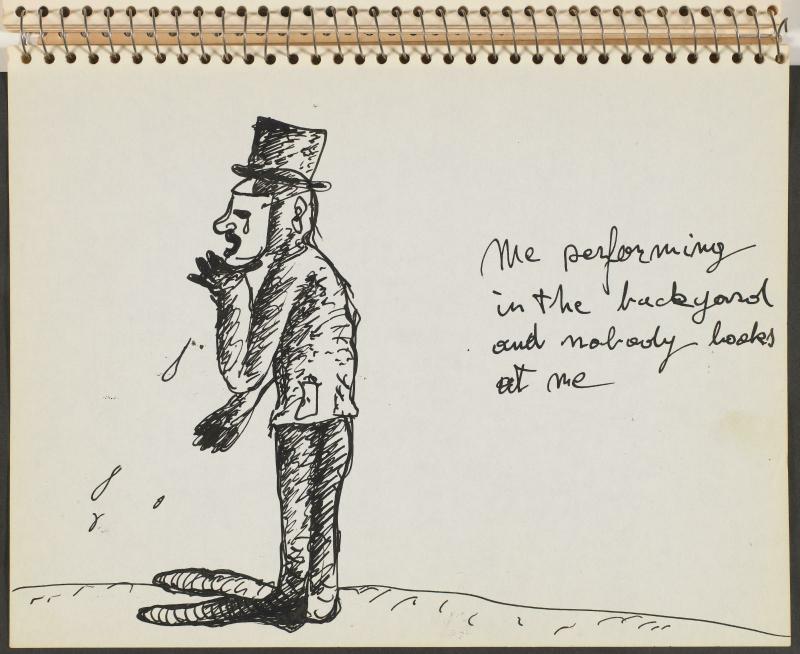 Me performing
in the backyard
and nobody looks
at me